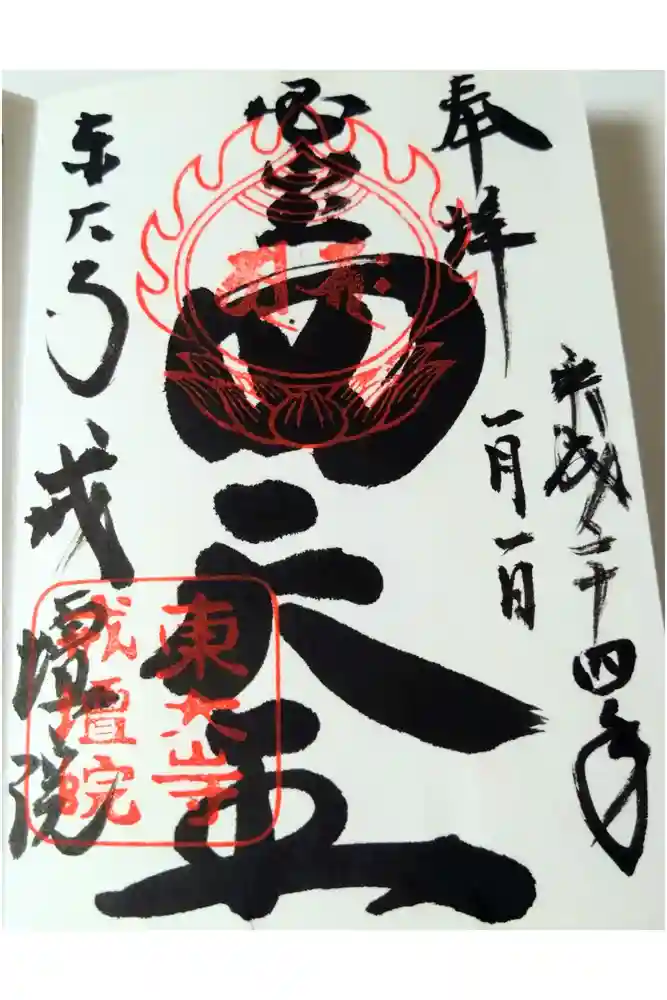 平成二十四年
奉拝
一月一日
国宝
四天王
東大寺
戒壇院
東大寺
戒壇院